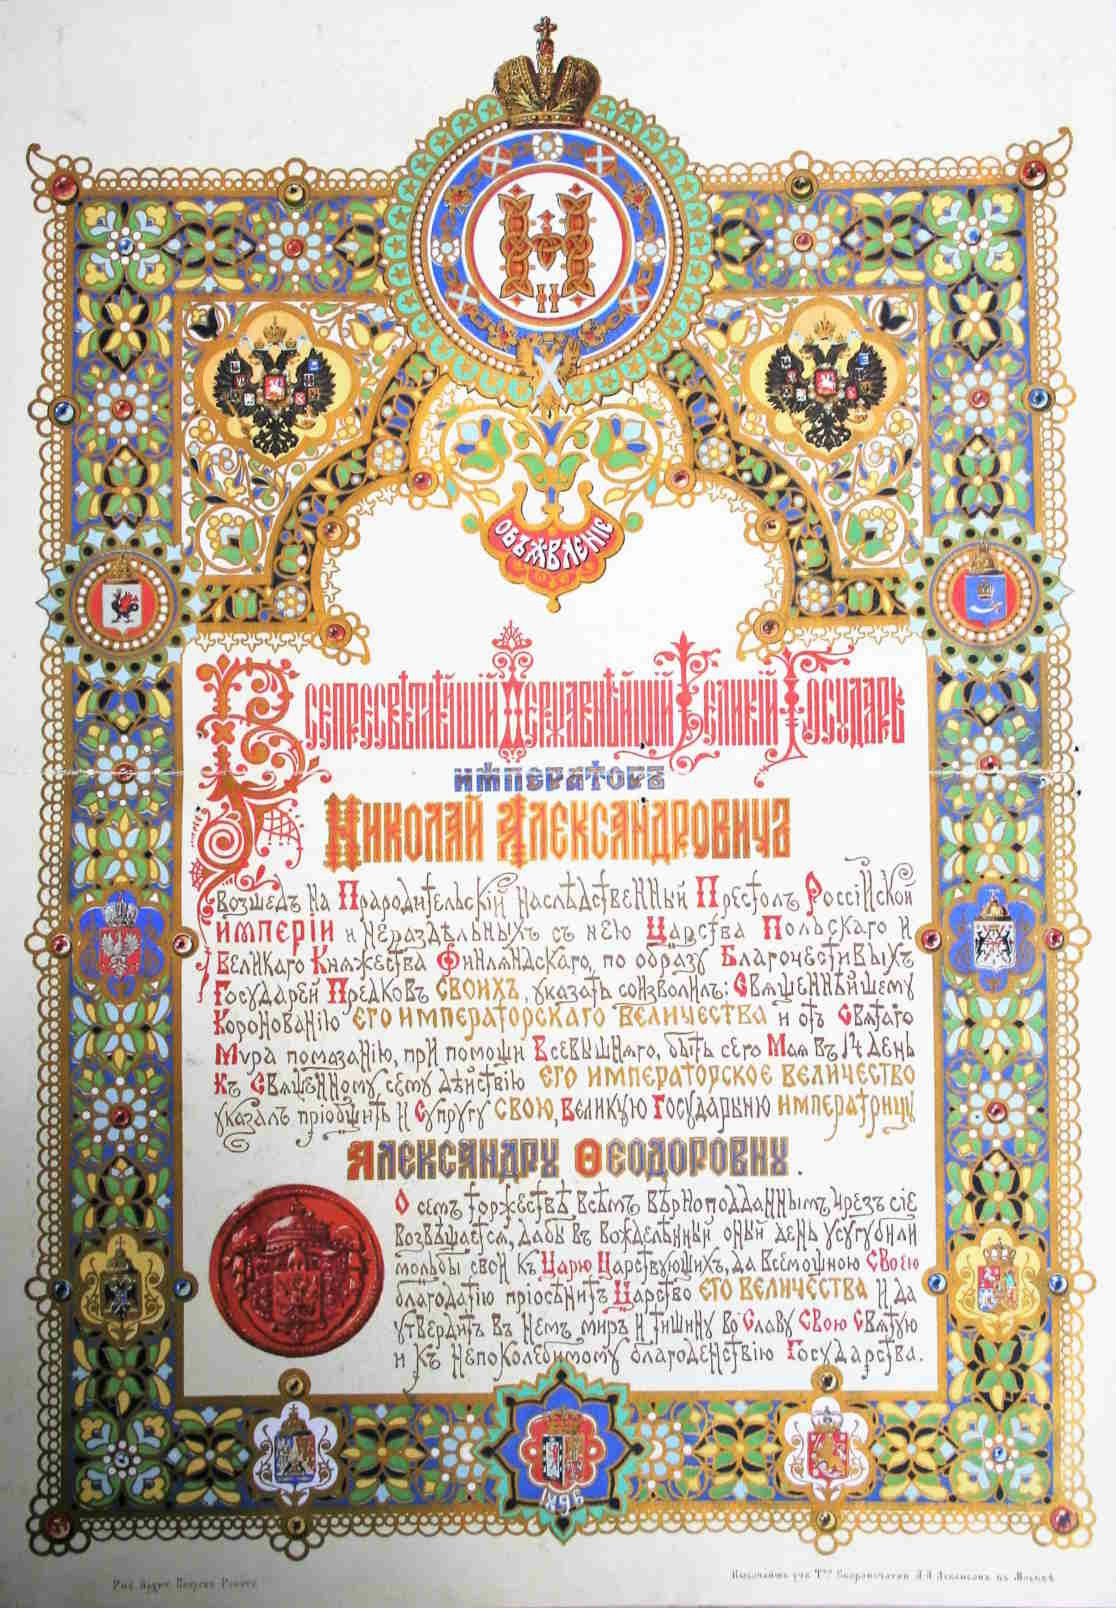 Н
II
ОБЪЯВЛЕНІЕ
ВСЕПРЕСВѢТЛѢЙШІЙ ДЕРЖАВНѢЙШІЙ ВЕЛИКІЙ ГОСУДАРЬ
ИМПЕРАТОРЪ
НИКОЛАЙ АЛЕКСАНДРОВИЧЪ
возшедъ на Прародительскій наслѣдственный Престолъ Россійской
ИМПЕРІИ и нераздѣльныхъ съ нею Царства Польскаго и
Великаго Княжества Финляндскаго, по образу Благочестивыхъ
Государей Предковъ СВОИХЪ, указать соизволилъ: Священнѣйшему
Коронованію ЕГО ИМПЕРАТОРСКАГО ВЕЛИЧЕСТВА и отъ Святаго
Мѵра помазанію, при помощи Всевышняго, быть сего Мая въ 14 день
къ Священному сему дѣйствію ЕГО ИМПЕРАТОРСКОЕ ВЕЛИЧЕСТВО
указалъ пріобщить и Супругу СВОЮ, Великую Государыню ИМПЕРАТРИЦУ
АЛЕКСАНДРУ ѲЕОДОРОВНУ.
О семъ торжествѣ всѣмъ вѣрноподданнымъ чрезъ сіе
возвѣщается, дабы въ вожделѣнный оный день усугубили
мольбы свои къ Царю Царствующихъ, да Всемощною Своею
благодатію пріосѣнитъ Царство ЕГО ВЕЛИЧЕСТВА и да
утвердитъ въ немъ миръ и тишину во Славу Свою Святую
и къ непоколебимому благоденствію Государства.
1896
Высочайше утв. Т-во Скоропечатни А. А. Левенсонъ въ Москвѣ